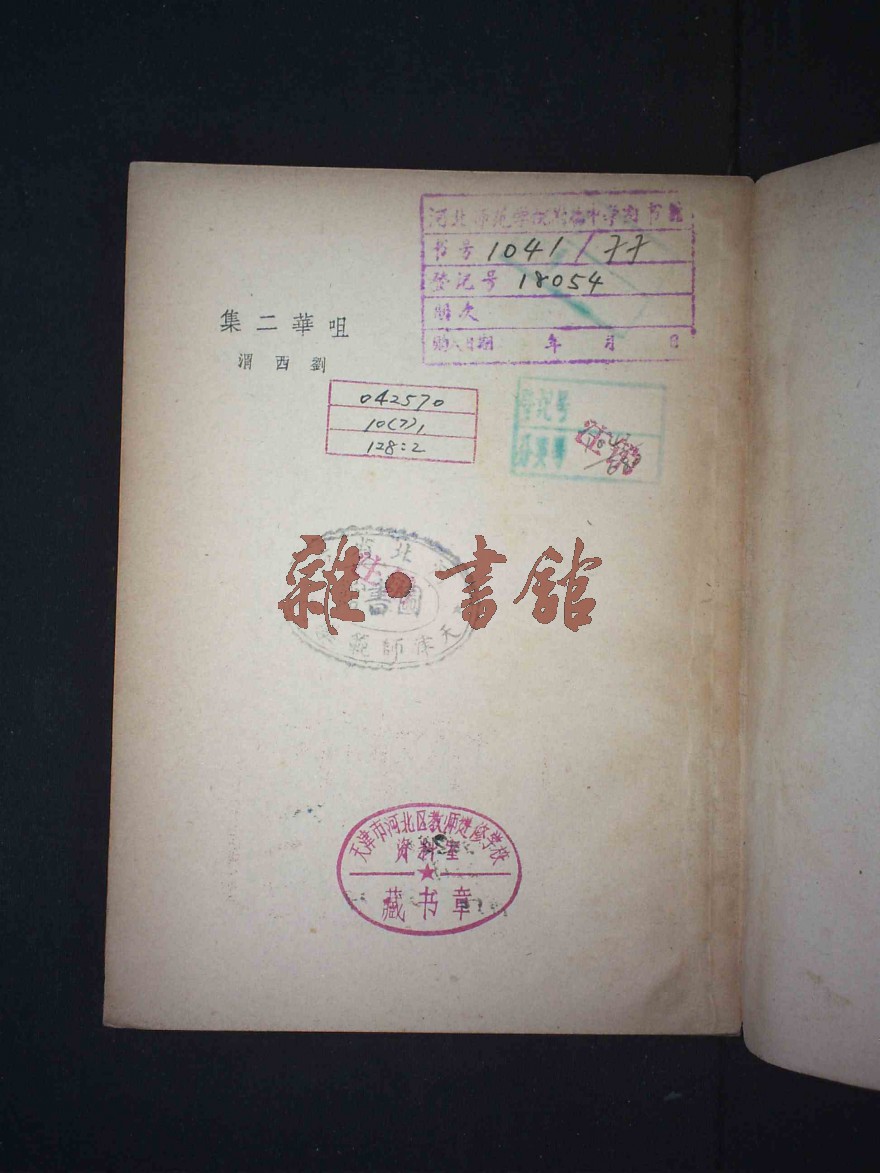 集二華咀
渭西劉
河北师范学院附属中学图书館
书号 1041/77
登记号 18054
购入日期 年 月 日
042570
10(7)1
128:2
登记号
分类号
注销
雜·書館
北
書圖
天津師範
天津市河北区教师进修学校
资料室
藏书章